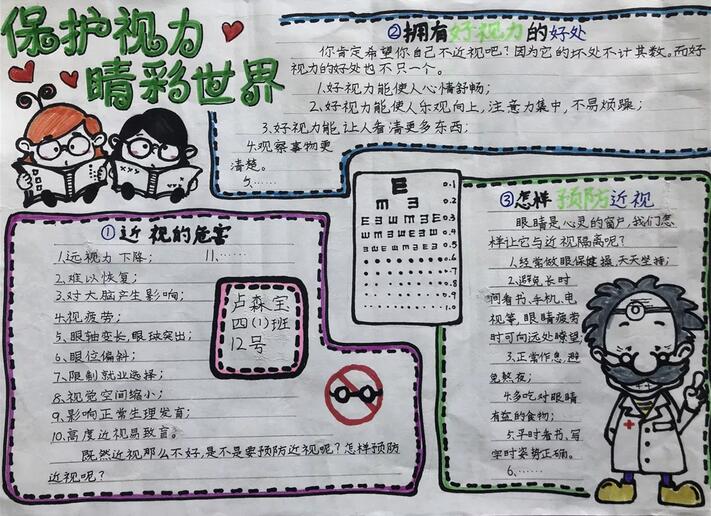 保护视力
睛彩世界
②拥有好视力的好处
你肯定希望你自己不近视吧?因为它的坏处不计其数。而好
视力的好处也不只一个。
1.好视力能使人心情舒畅;
2.好视力能使人乐观向上,注意力集中,不易烦躁;
3.好视力能让人看清更多东西;
4.观察事物更
清楚。
5.……
①近视的危害
1.远视力下降;
11.……
2.难以恢复;
3.对大脑产生影响;
4.视疲劳;
5.眼轴变长,眼球突出;
6.眼位偏斜;
7.限制就业选择;
8.视觉空间缩小;
9.影响正常生理发育;
10.高度近视易致盲。
既然近视那么不好,是不是要预防近视呢?怎样预防
近视呢?
卢森宝
四(1)班
12号
E 0.1
m E 0.2
E W M E 0.3
0.4
0.5
0.6
0.7
0.8
0.9
1.0
③怎样预防近视
眼睛是心灵的窗户,我们怎
样让它与近视隔离呢?
1.经常做眼保健操,天天坚持;
2.避免长时
间看书、手机、电
视等,眼睛疲劳
时可向远处瞭望;
3.正常作息,避
免熬夜;
4.多吃对眼睛
有益的食物;
5.平时看书、写
字时姿势正确。
6.……